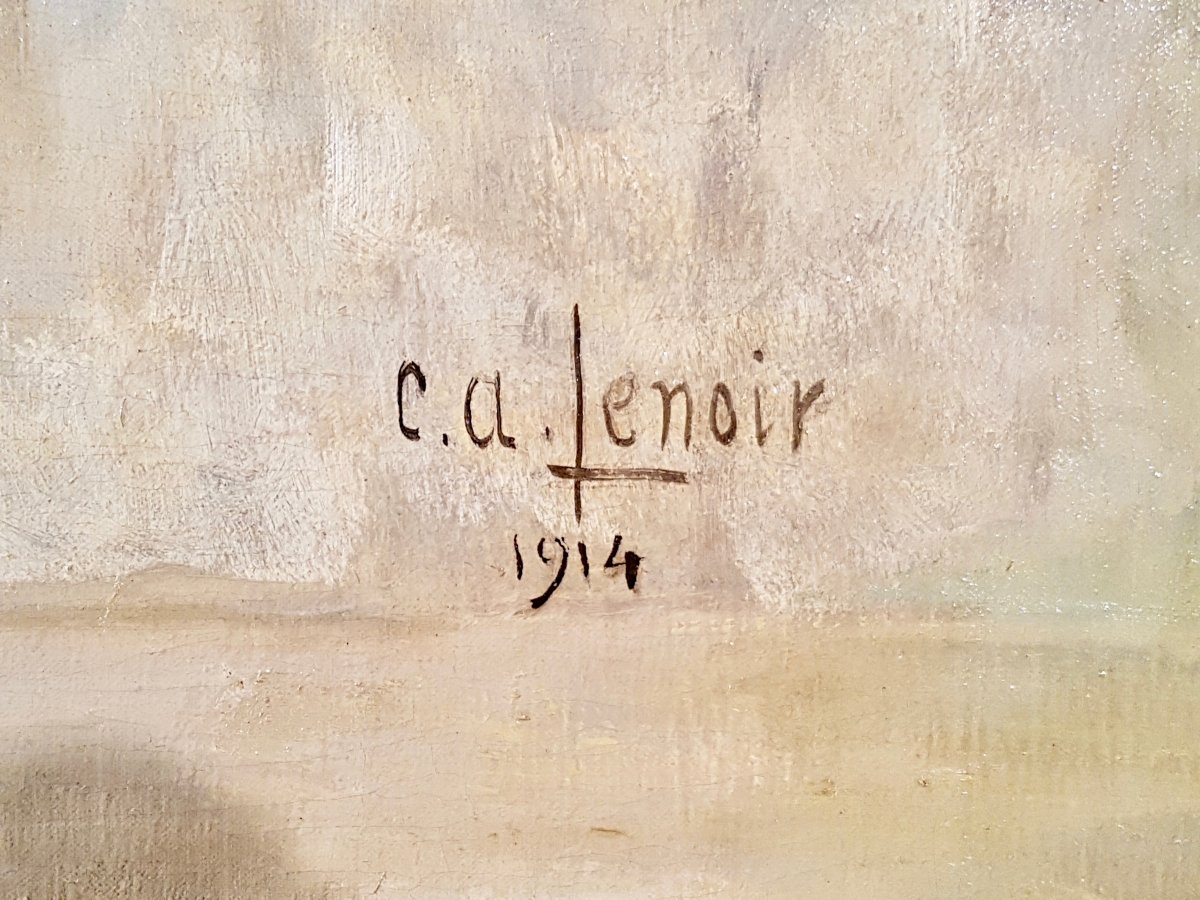 C.a.Lenoir
1914